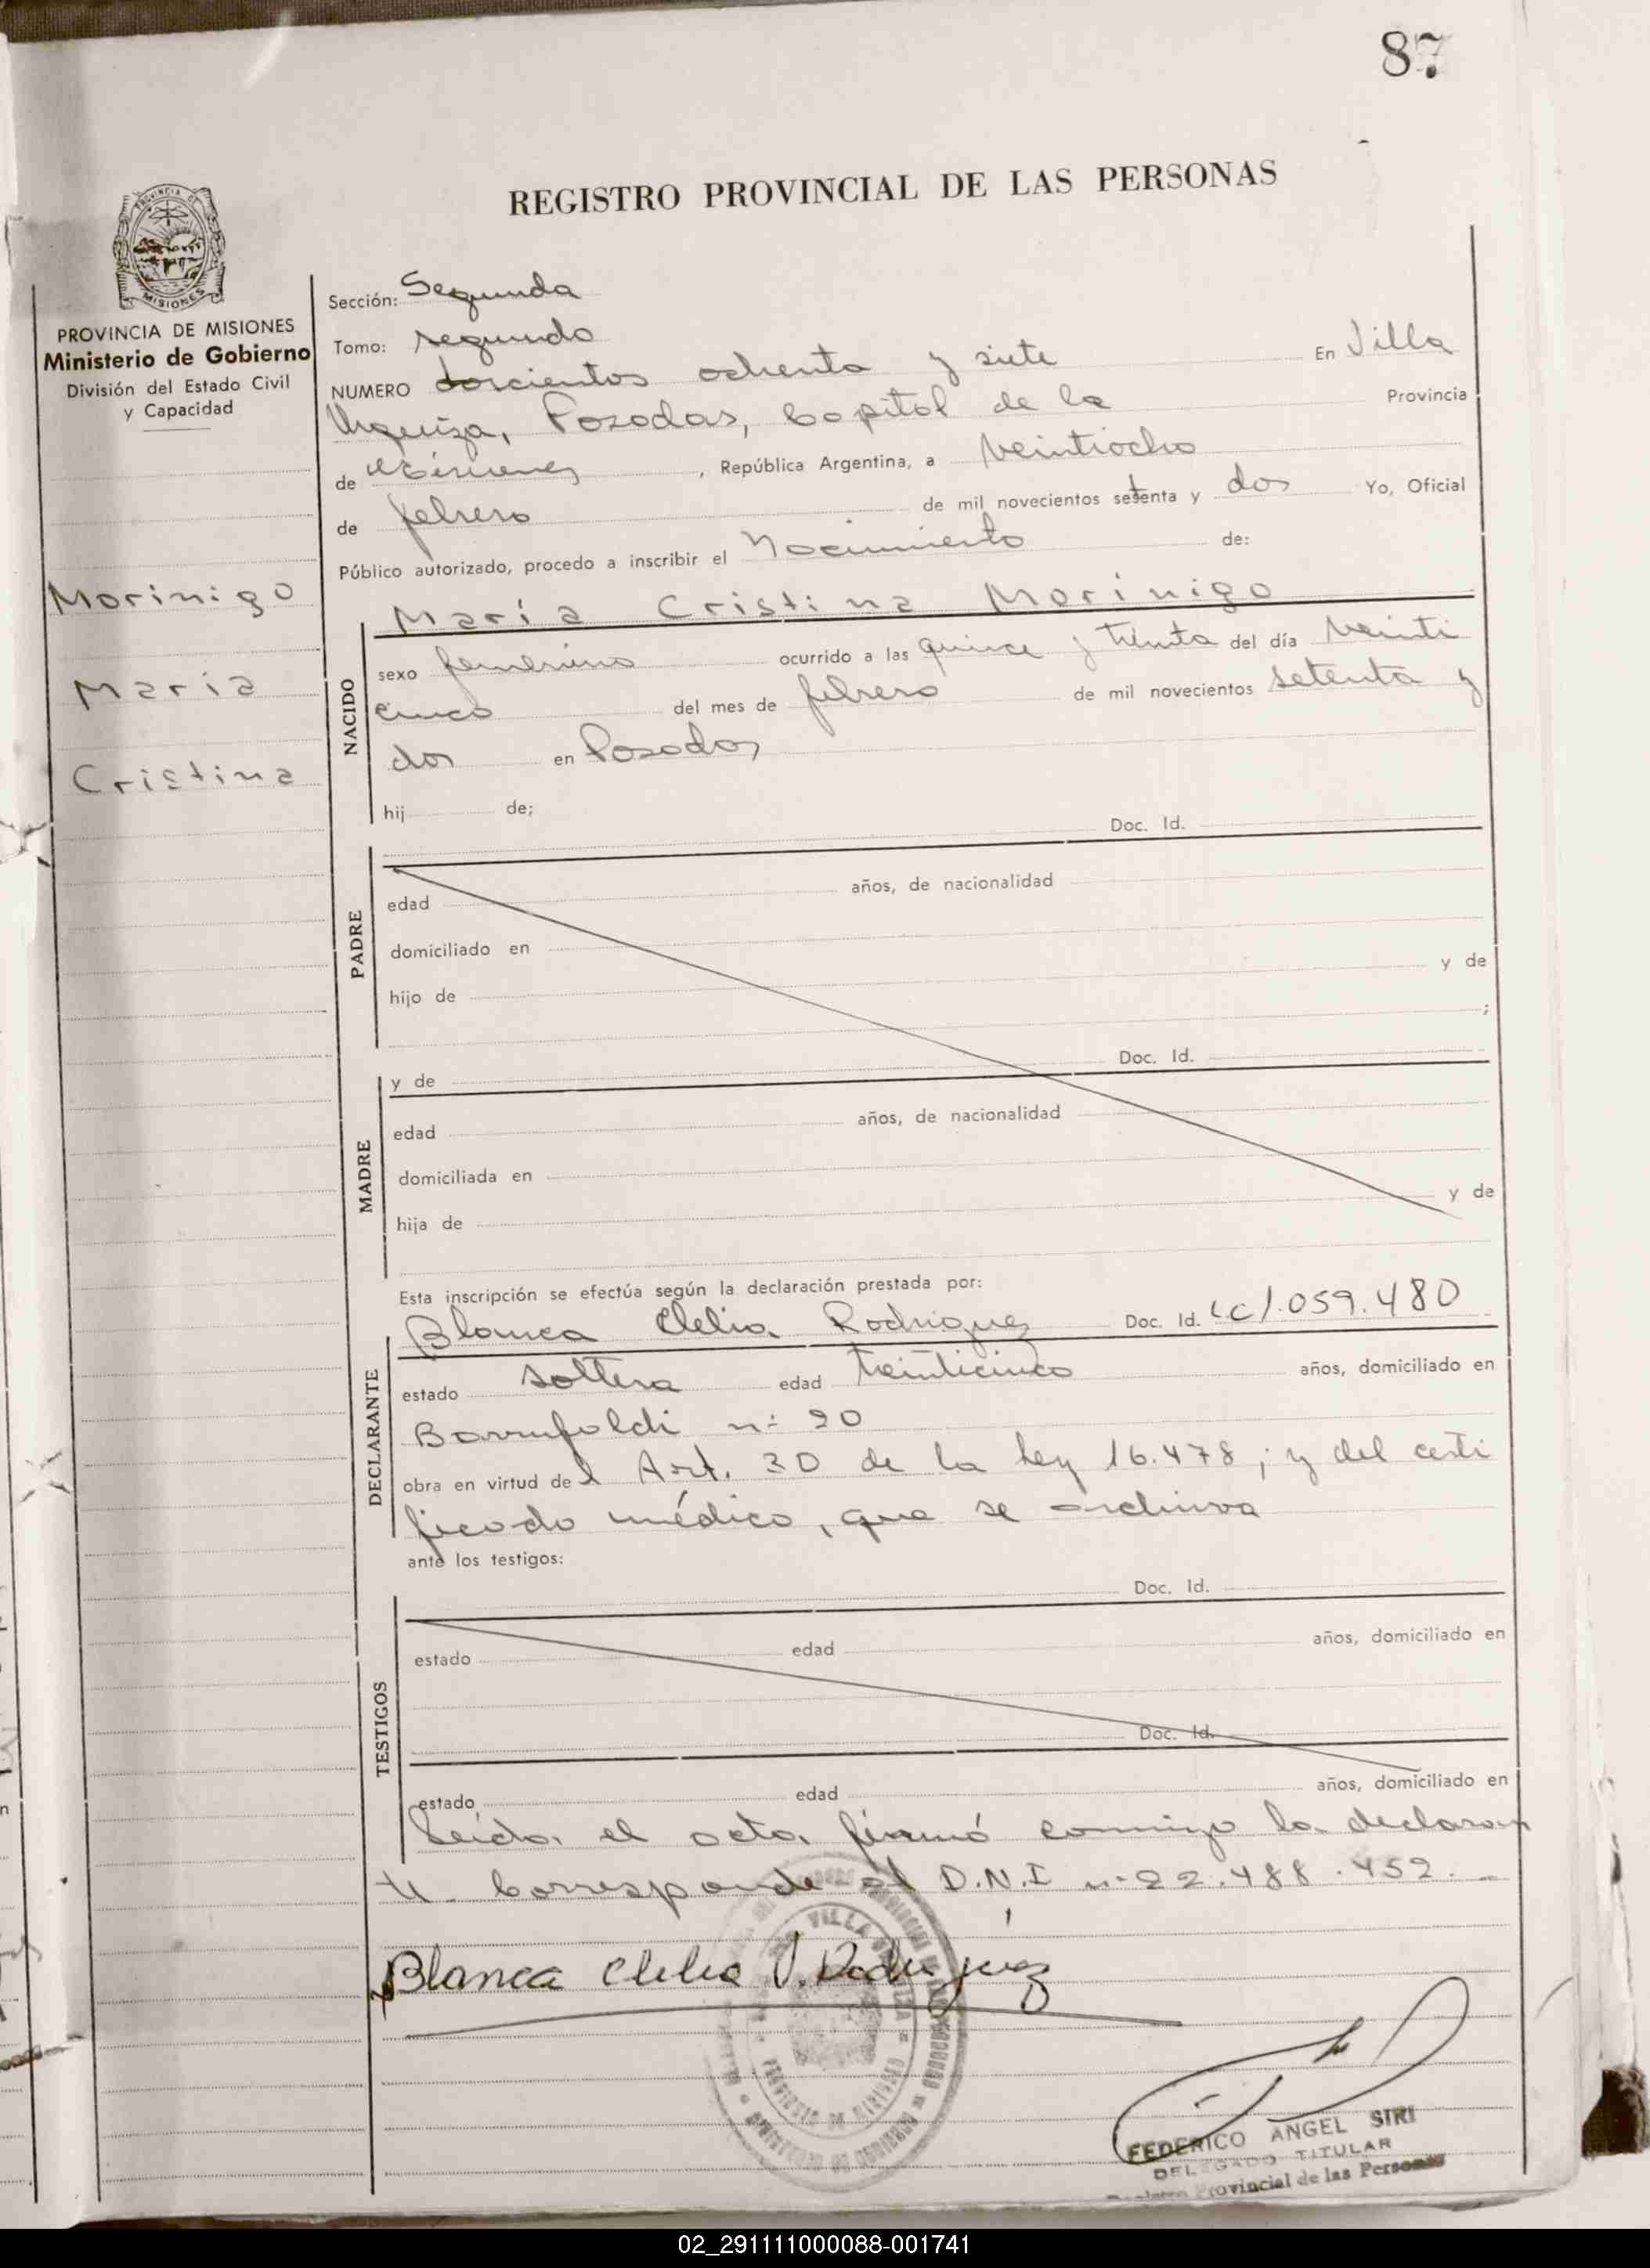 87
REGISTRO PROVINCIAL DE LAS PERSONAS
PROVINCIA DE MISIONES
Ministerio de Gobierno
División del Estado Civil
y Capacidad
Morinigo
María
Cristina
Sección: Segunda
Tomo: segundo
NUMERO doscientos ochenta y siete En Villa
Urquiza, Posadas, Capital de la Provincia
de Misiones, República Argentina, a veintiocho
de febrero de mil novecientos setenta y dos Yo, Oficial
Público autorizado, procedo a inscribir el Nacimiento de:
María Cristina Morinigo
NACIDO
sexo femenino ocurrido a las quince y treinta del día veinti
cinco del mes de febrero de mil novecientos setenta y
dos en Posadas
hij de;
Doc. Id.
PADRE
edad años, de nacionalidad
domiciliado en
hijo de y de
;
Doc. Id.
y de
MADRE
edad años, de nacionalidad
domiciliada en
hija de y de
Esta inscripción se efectúa según la declaración prestada por:
Blanca Clelia Rodriguez Doc. Id. LC 1.059.480
DECLARANTE
estado soltera edad veinticinco años, domiciliado en
n° 90
obra en virtud del Art. 30 de la ley 16.478; y del certi
ficado médico, que se archiva
ante los testigos:
Doc. Id.
TESTIGOS
estado edad años, domiciliado en
Doc. Id.
estado edad años, domiciliado en
Leída el acta, firmó conmigo la declaran
te. Corresponde al D.N.I n° 22.488.452.
Blanca Clelia V. Rodriguez
VILLA URQUIZA
PROVINCIA DE MISIONES
FEDERICO ANGEL SIRI
DELEGADO TITULAR
Registro Provincial de las Personas
02_291111000088-001741